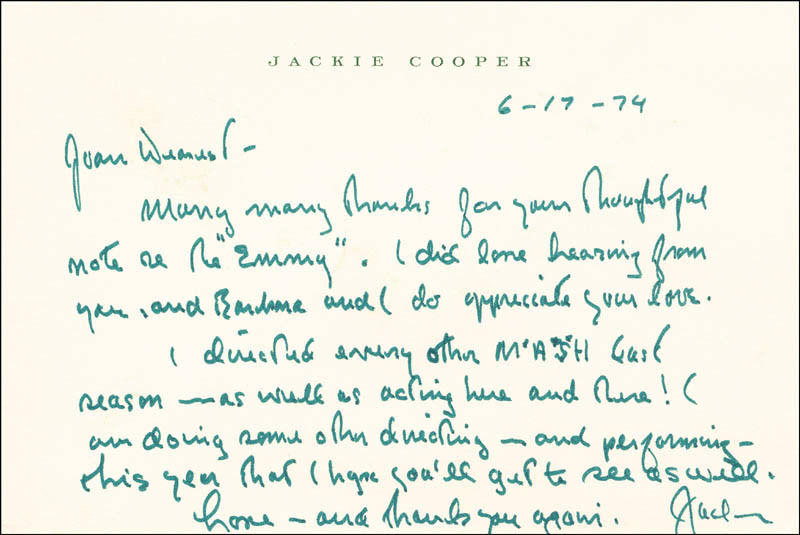 JACKIE COOPER
6-17-74
Joan Dearest -
Many many thanks for your thoughtful
note re the "Emmy". I did love hearing from
you, and Barbara and I do appreciate your love.
I directed every other M*A*S*H last
season — as well as acting here and there! I
am doing some other directing - and performing -
this year that I hope you'll get to see as well.
Love - and thank you again. Jackie